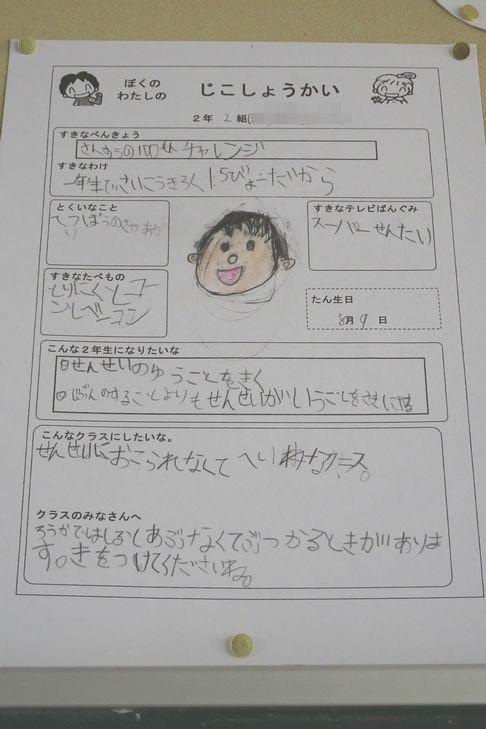 ぼくの
わたしの
じこしょうかい
2年 2 組(
すきなべんきょう
さんすうの100ませんチャレンジ
すきなわけ
一年生でさいこうきろく1.5びょうだから
とくいなこと
てつぼうのさかあが
り
すきなテレビばんぐみ
スーパーせんたい
すきなたべもの
とりにくとコー
ンとベーコン
たん生日
8月 9 日
こんな2年生になりたいな
せんせいのゆうことをきく
じぶんのすることよりもせんせいがいうことをさきにやる
こんなクラスにしたいな。
せんせいにおこられなくてへい和なクラス。
クラスのみなさんへ
ろうかではしるとあぶなくてぶつかるときがありま
す。きをつけてくださいね。